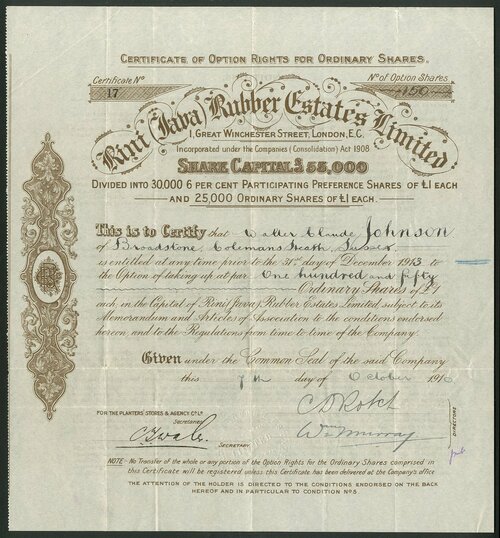 CERTIFICATE OF OPTION RIGHTS FOR ORDINARY SHARES.
Certificate No
No of Option Shares
17
150
Rini (Java) Rubber Estates Limited
1, GREAT WINCHESTER STREET, LONDON, E.C.
Incorporated under the Companies (Consolidation) Act 1908
SHARE CAPITAL £55,000
DIVIDED INTO 30,000 6 PER CENT PARTICIPATING PREFERENCE SHARES OF £1 EACH
AND 25,000 ORDINARY SHARES OF £1 EACH.
This is to Certify that Walter Claude Johnson
of Broadstone, Colemans Heath, Sussex
is entitled at any time prior to the 31st day of December 1913 to
the Option of taking up at par One hundred and fifty
Ordinary Shares of £1
each in the Capital of Rini (Java) Rubber Estates Limited, subject to its
Memorandum and Articles of Association to the conditions endorsed
hereon, and to the Regulations from time to time of the Company.
Given under the Common Seal of the said Company
this 7th day of October 1910
FOR THE PLANTERS' STORES & AGENCY Co Ld
Secretaries
SECRETARY.
Wm Murray
DIRECTORS
NOTE - No Transfer of the whole or any portion of the Option Rights for the Ordinary Shares comprised in
this Certificate will be registered unless this Certificate has been delivered at the Company's office
THE ATTENTION OF THE HOLDER IS DIRECTED TO THE CONDITIONS ENDORSED ON THE BACK
HEREOF AND IN PARTICULAR TO CONDITION No 5